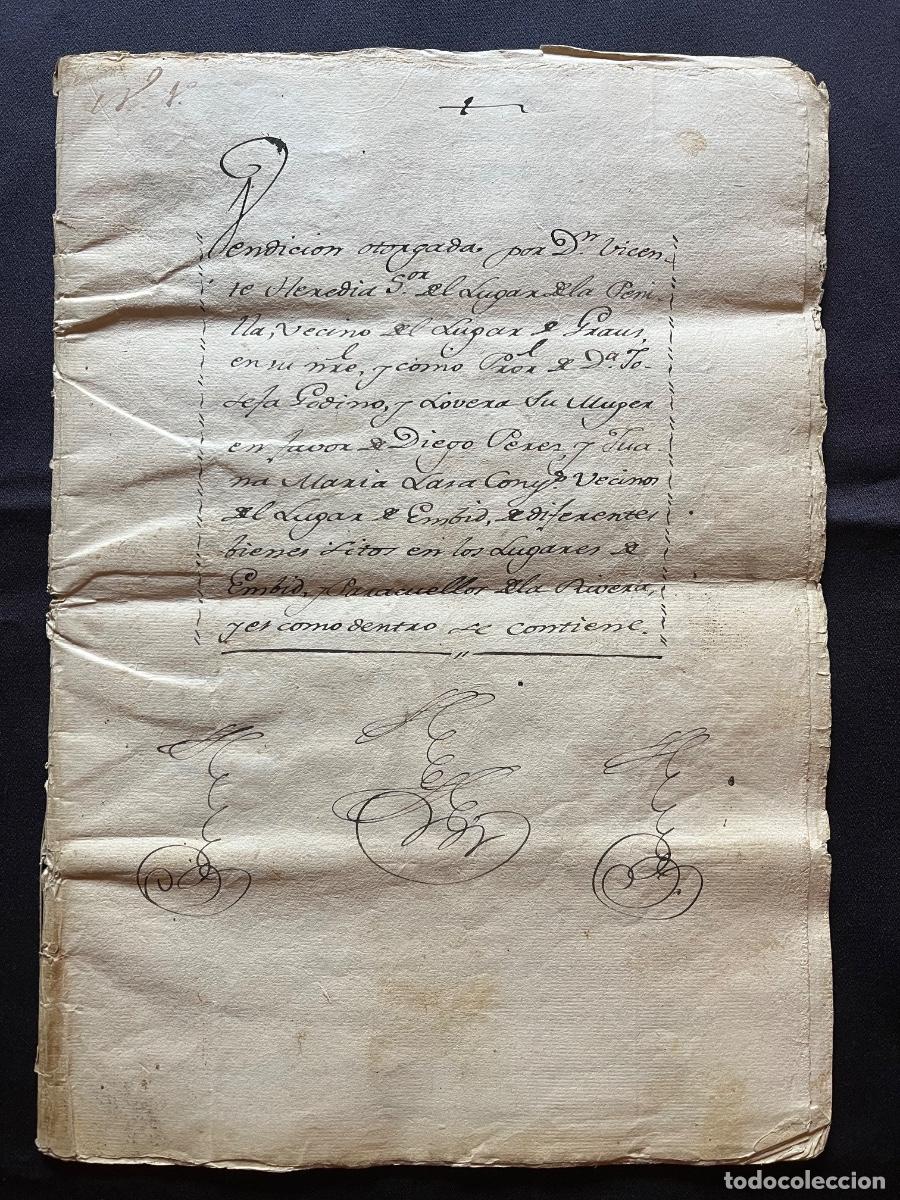 Vendicion otorgada, por Dn. Vicen-
te Heredia Sor. del Lugar dela Peni-
lla, vecino del Lugar de Graus,
en su nre, y como Pror de Da. Jo-
sefa Godino, y Lovera Su Muger
en favor de Diego Perez, y Jua-
na Maria Lasa Conyes Vecinos
del Lugar de Embid, de diferentes
bienes sitos en los Lugares de
Embid, y Paracuellos dela Rivera,
y es como dentro se contiene.
todocoleccion